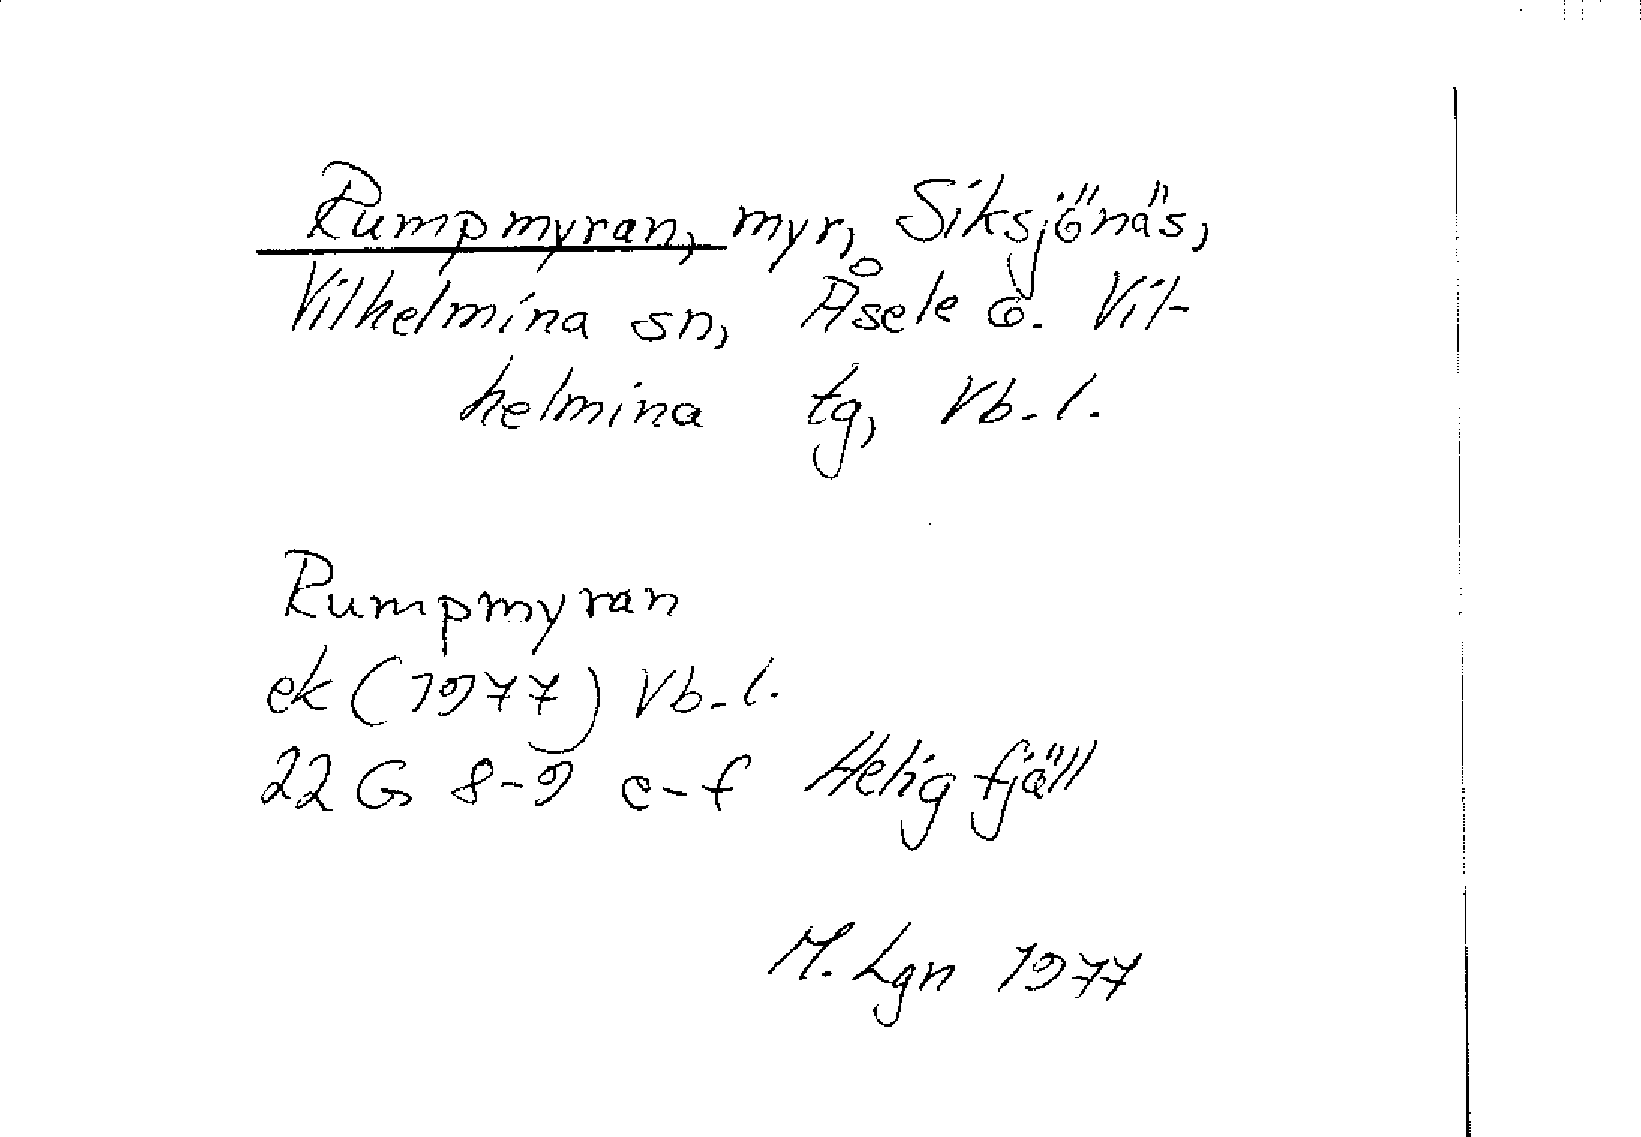 Rumpmyran, myr, Siksjönäs,
Vilhelmina sn, Åsele ö. Vil-
helmina tg, Vb. l.
Rumpmyran
ek (1977) Vb. l.
22 G 8-9 e-f Heligfjäll
M. Lgn 1977